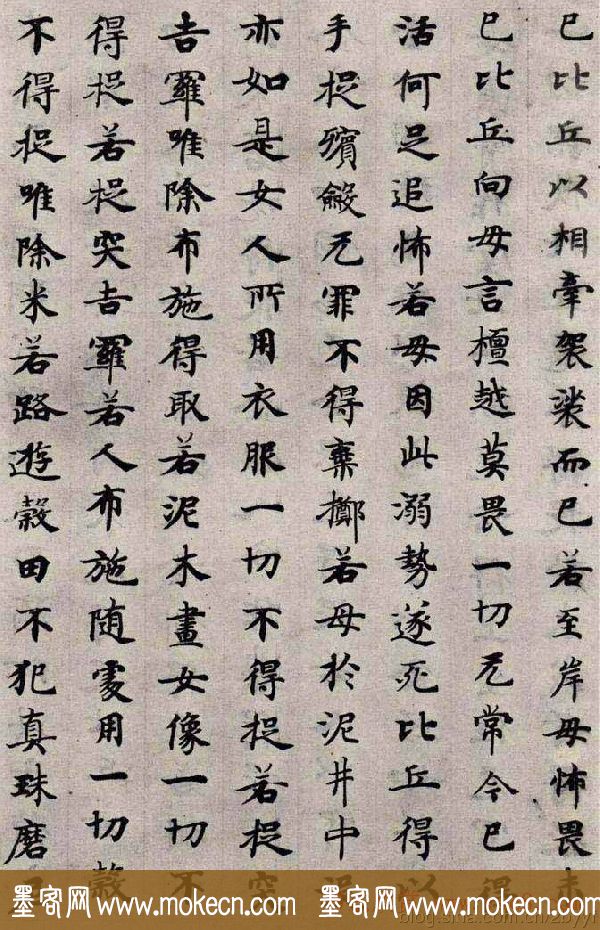 已比丘以相牽袈裟而已若至岸母怖畏未
已比丘向母言檀越莫畏一切无常今已得
活何足追怖若母因此溺勢遂死比丘得以
手捉殯殮无罪不得棄擲若母於泥井中
亦如是女人所用衣服一切不得捉若捉突
吉羅唯除布施得取若泥木畫女像一切不
得捉若捉突吉羅若人布施随處用一切穀
不得捉唯除米若路遊穀田不犯真珠磨
墨客网 www.mokecn.com 墨客网 www.mokecn.com
blog.sina.com.cn/zbyyr